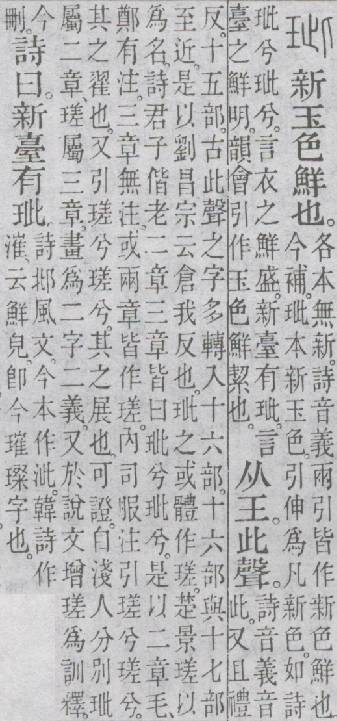 玼 新玉色鮮也。各本無新。詩音義兩引皆作新色鮮也
今補。玼本新玉色。引伸爲凡新色。如詩
玼兮玼兮。言衣之鮮盛。新臺有玼。言
臺之鮮明。韻會引作玉色鮮絜也。
从王。此聲。詩音義音
此。又且禮
反。十五部。古此聲之字多轉入十六部。十六部與十七部
至近。是以劉昌宗云倉我反也。玼之或體作瑳。楚景瑳以
爲名。詩君子偕老二章三章皆曰玼兮玼兮。是以二章毛、
鄭有注。三章無注。或兩章皆作瑳。內司服注引瑳兮瑳兮。
其之翟也。又引瑳兮瑳兮。其之展也。可證。自淺人分別玼
屬二章、瑳屬三章。畫爲二字二義。又於說文增瑳爲訓釋。
刪。詩曰。新臺有玼。詩邶風文。今本作泚。韓詩作
漼。云鮮皃。卽今璀璨字也。